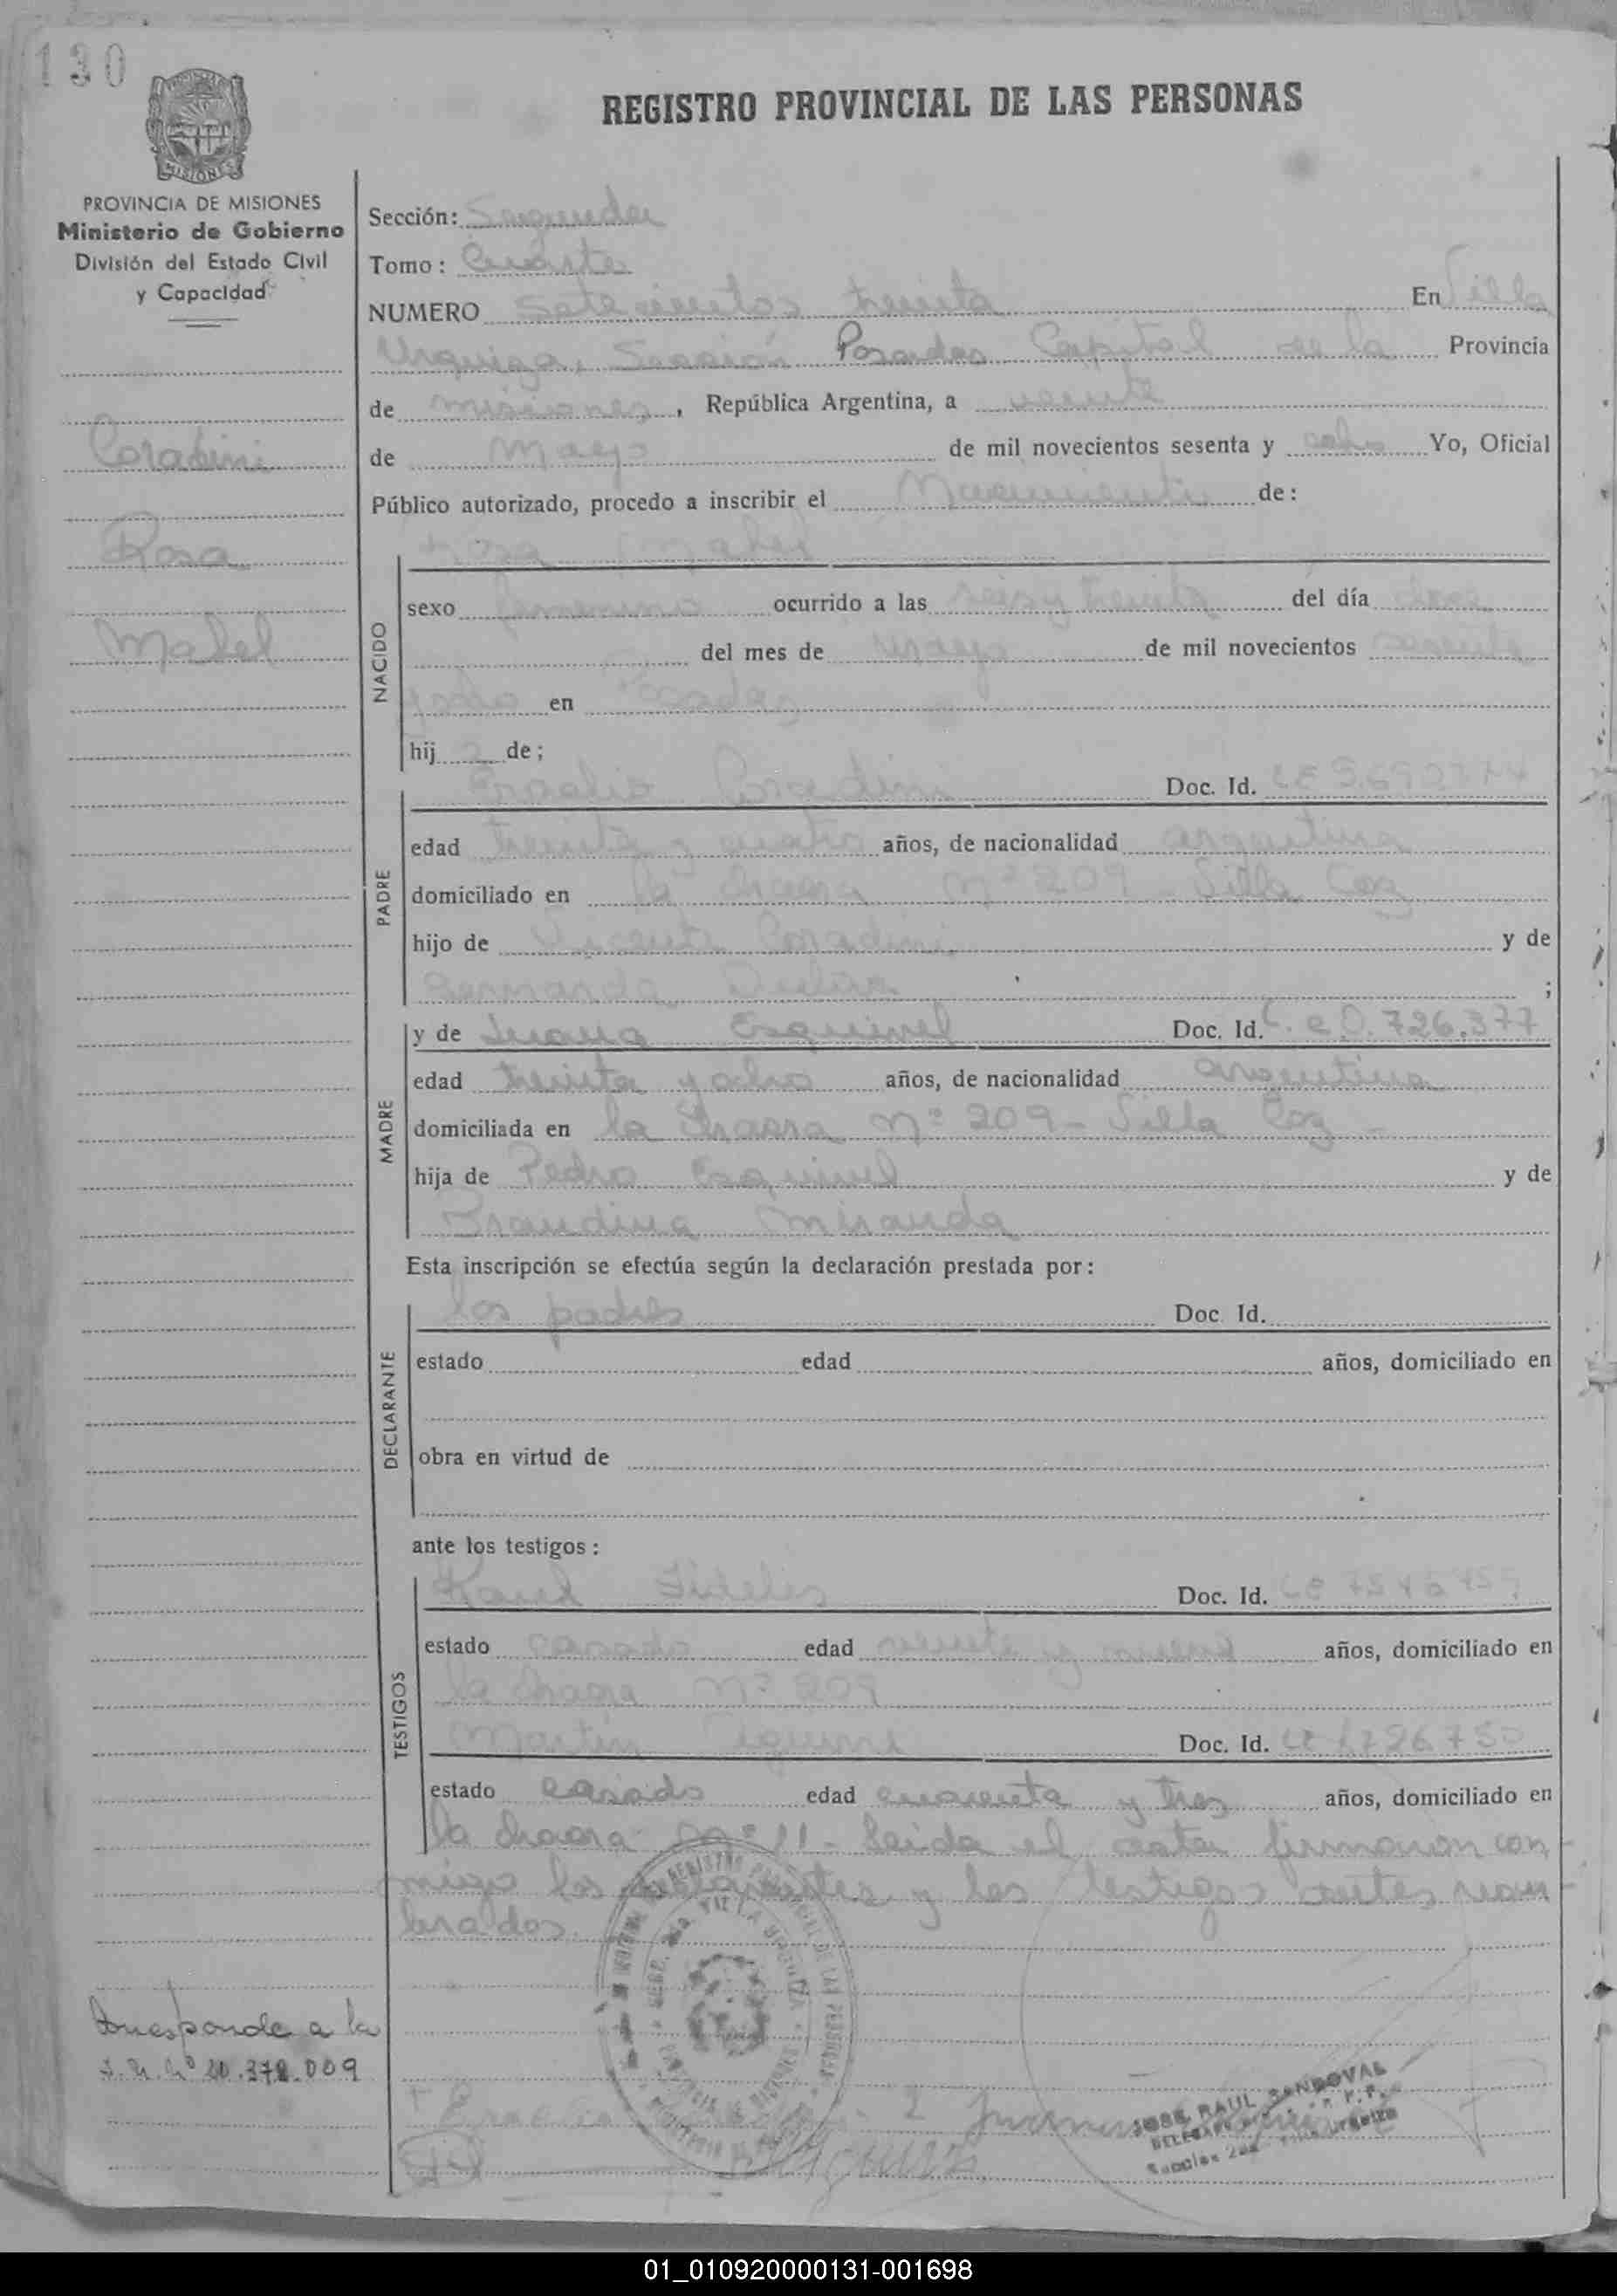 130
REGISTRO PROVINCIAL DE LAS PERSONAS
MISIONES
PROVINCIA DE MISIONES
Ministerio de Gobierno
División del Estado Civil
y Capacidad
Coradini
Rosa
Mabel
Sección: Segunda
Tomo: Cuarto
NUMERO Setecientos treinta En Villa
Urquiza, Sección Posadas Capital de la Provincia
de Misiones, República Argentina, a veinte
de Mayo de mil novecientos sesenta y ocho Yo, Oficial
Público autorizado, procedo a inscribir el Nacimiento de:
Rosa Mabel
NACIDO
sexo femenino ocurrido a las seis y treinta del día doce
del mes de mayo de mil novecientos sesenta
y ocho en Posadas
hij a de;
PADRE
Coradini Doc. Id.
edad treinta y cuatro años, de nacionalidad argentina
domiciliado en la chacra Nº 209 - Villa Coz
hijo de Vicente Coradini y de
;
MADRE
y de Juana Esquivel Doc. Id. 726.377
edad treinta y ocho años, de nacionalidad argentina
domiciliada en la chacra Nº 209 - Villa Coz -
hija de Pedro Esquivel y de
Miranda
Esta inscripción se efectúa según la declaración prestada por:
DECLARANTE
los padres Doc. Id.
estado edad años, domiciliado en
obra en virtud de
ante los testigos:
TESTIGOS
Raul Fideles Doc. Id.
estado casado edad veinte y nueve años, domiciliado en
la chacra Nº 209
Martin Aguirre Doc. Id.
estado casado edad cuarenta y tres años, domiciliado en
la chacra Nº 11 - Leida el acta firmaron con
migo los declarantes y los testigos antes nom
brados.
Corresponde a la
JOSE RAUL SANDOVAL
01_010920000131-001698